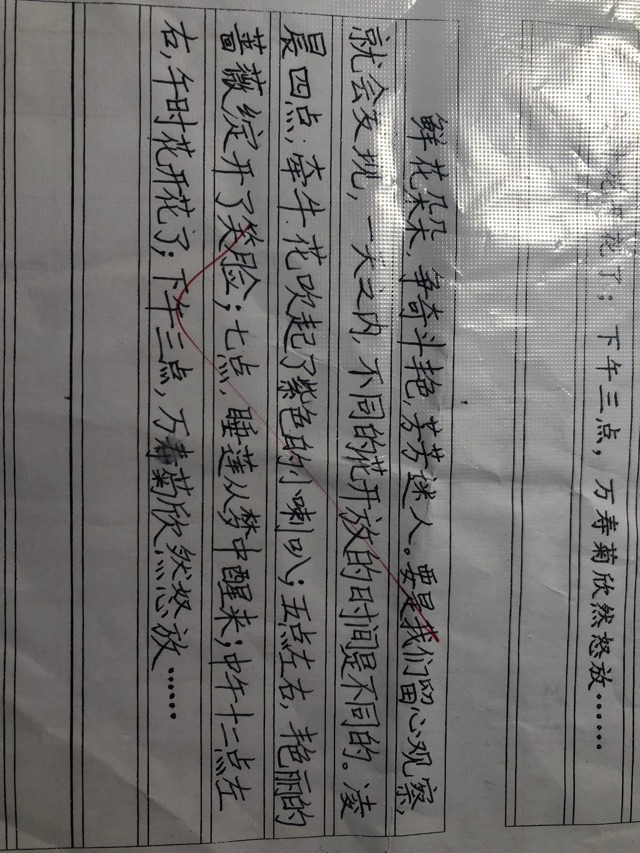 花开花了；下午三点，万寿菊欣然怒放……
鲜花朵朵，争奇斗艳，芬芳迷人。要是我们留心观察，
就会发现，一天之内，不同的花开放的时间是不同的。凌
晨四点，牵牛花吹起了紫色的小喇叭；五点左右，艳丽的
蔷薇绽开了笑脸；七点，睡莲从梦中醒来；中午十二点左
右，午时花开花了；下午三点，万寿菊欣然怒放……